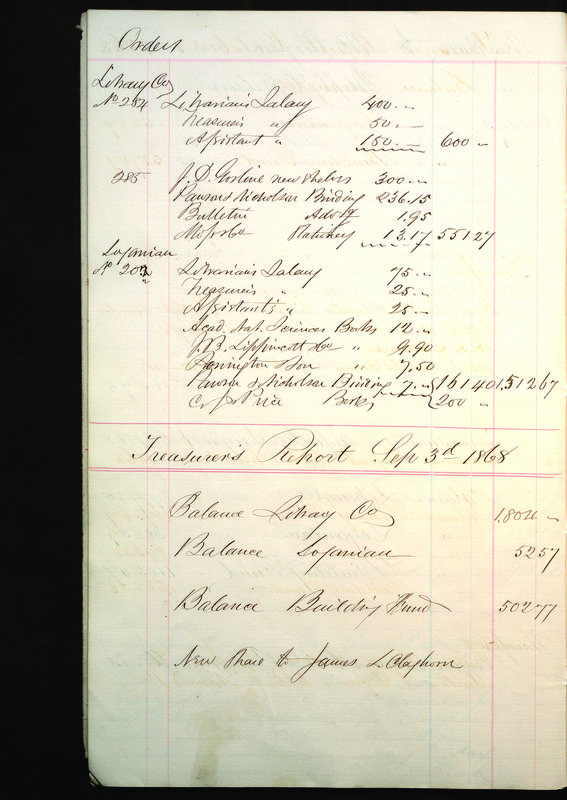 Orders
Library Co
No 284 Librarian's Salary 400.--
Treasurers " 50.--
Assistant " 150.-- 600 --
285 J. D. Gosline new shelves 300.--
Pawson & Nicholson Binding 236.15
Bulletin Advtg 1.95
Moss & Co Stationery 13.17 551 27
Loganian
No 202 Librarians Salary 75.--
Treasurers " 25.--
Assistant's " 25.--
Acad. Nat. Sciences Books 12.--
J. B. Lippincott & Co " 9.90
Penington & Son " 7.50
Pawson & Nicholson Binding 7.-- 161 40 1,512 67
C. J. Price Books 200 --
Treasurer's Report Sep 3d 1868
Balance Library Co 1,804 --
Balance Loganian 52 57
Balance Building Fund 502 77
New Share to James L. Claghorn